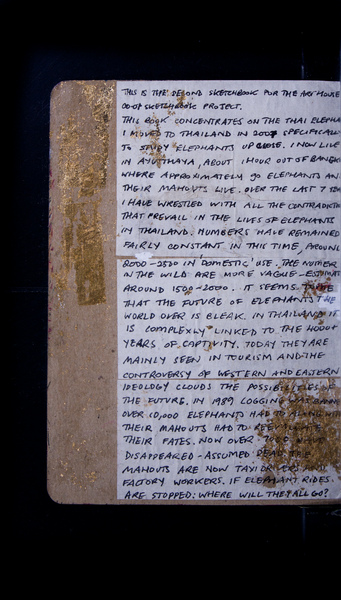 THIS IS THE SECOND SKETCHBOOK FOR THE ART HOUSE
CO-OP SKETCHBOOK PROJECT.
THIS BOOK CONCENTRATES ON THE THAI ELEPHA
I MOVED TO THAILAND IN 2007 SPECIFICALL
TO STUDY ELEPHANTS UP CLOSE. I NOW LIVE
IN AYUTHAYA, ABOUT 1 HOUR OUT OF BANGK
WHERE APPROXIMATELY 90 ELEPHANTS AN
THEIR MAHOUTS LIVE. OVER THE LAST 7 YEA
I HAVE WRESTLED WITH ALL THE CONTRADICTI
THAT PREVAIL IN THE LIVES OF ELEPHANTS
IN THAILAND. NUMBERS HAVE REMAINED
FAIRLY CONSTANT IN THIS TIME, AROUND
2000-2500 IN 'DOMESTIC' USE. THE NUMBER
IN THE WILD ARE MORE VAGUE - ESTIMAT
AROUND 1500-2000. IT SEEMS TO ME
THAT THE FUTURE OF ELEPHANTS THE
WORLD OVER IS BLEAK. IN THAILAND IT
IS COMPLEXLY LINKED TO THE 4000+
YEARS OF CAPTIVITY. TODAY THEY ARE
MAINLY SEEN IN TOURISM AND THE
CONTROVERSY OF WESTERN AND EASTERN
IDEOLOGY CLOUDS THE POSSIBILITIES OF
THE FUTURE. IN 1989 LOGGING WAS BANNED
OVER 10,000 ELEPHANTS HAD TO ALONG WITH
THEIR MAHOUTS HAD TO REEVALUATE
THEIR FATES. NOW OVER 7000 HAVE
DISAPPEARED - ASSUMED DEAD. THE
MAHOUTS ARE NOW TAXI DRIVERS AND
FACTORY WORKERS. IF ELEPHANT RIDES
ARE STOPPED: WHERE WILL THEY ALL GO?